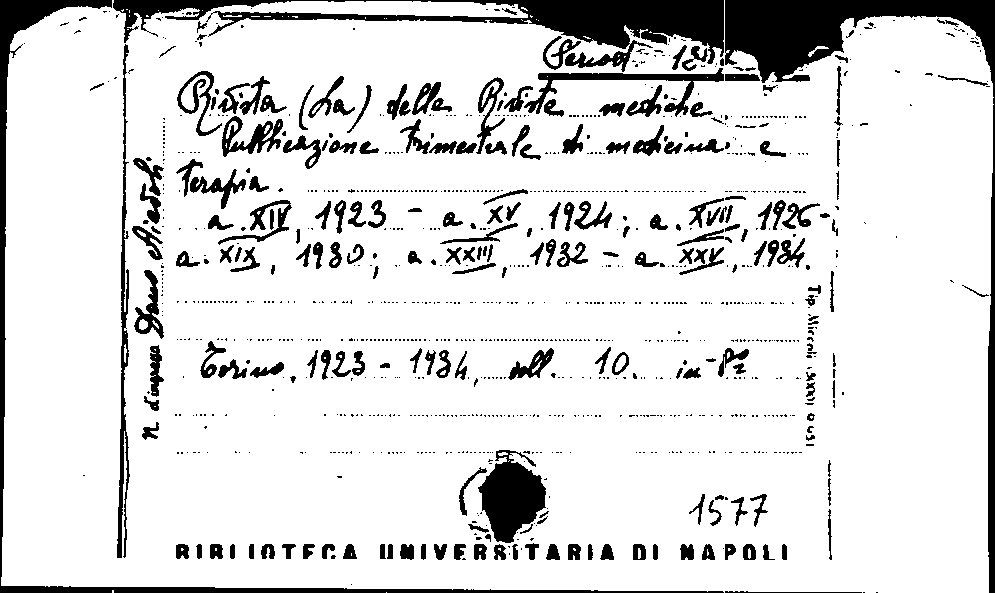 Period
Rivista (La) delle Riviste mediche.
Pubblicazione trimestrale di medicina e
terapia.
a. XIV, 1923 - a. XV, 1924; a. XVII, 1926 -
a. XIX, 1930; a. XXIII, 1932 - a. XXV, 1934.
Torino, 1923 - 1934, voll. 10. in-8º
N. d'ingresso Dono
Tip.
1577
BIBLIOTECA UNIVERSITARIA DI NAPOLI